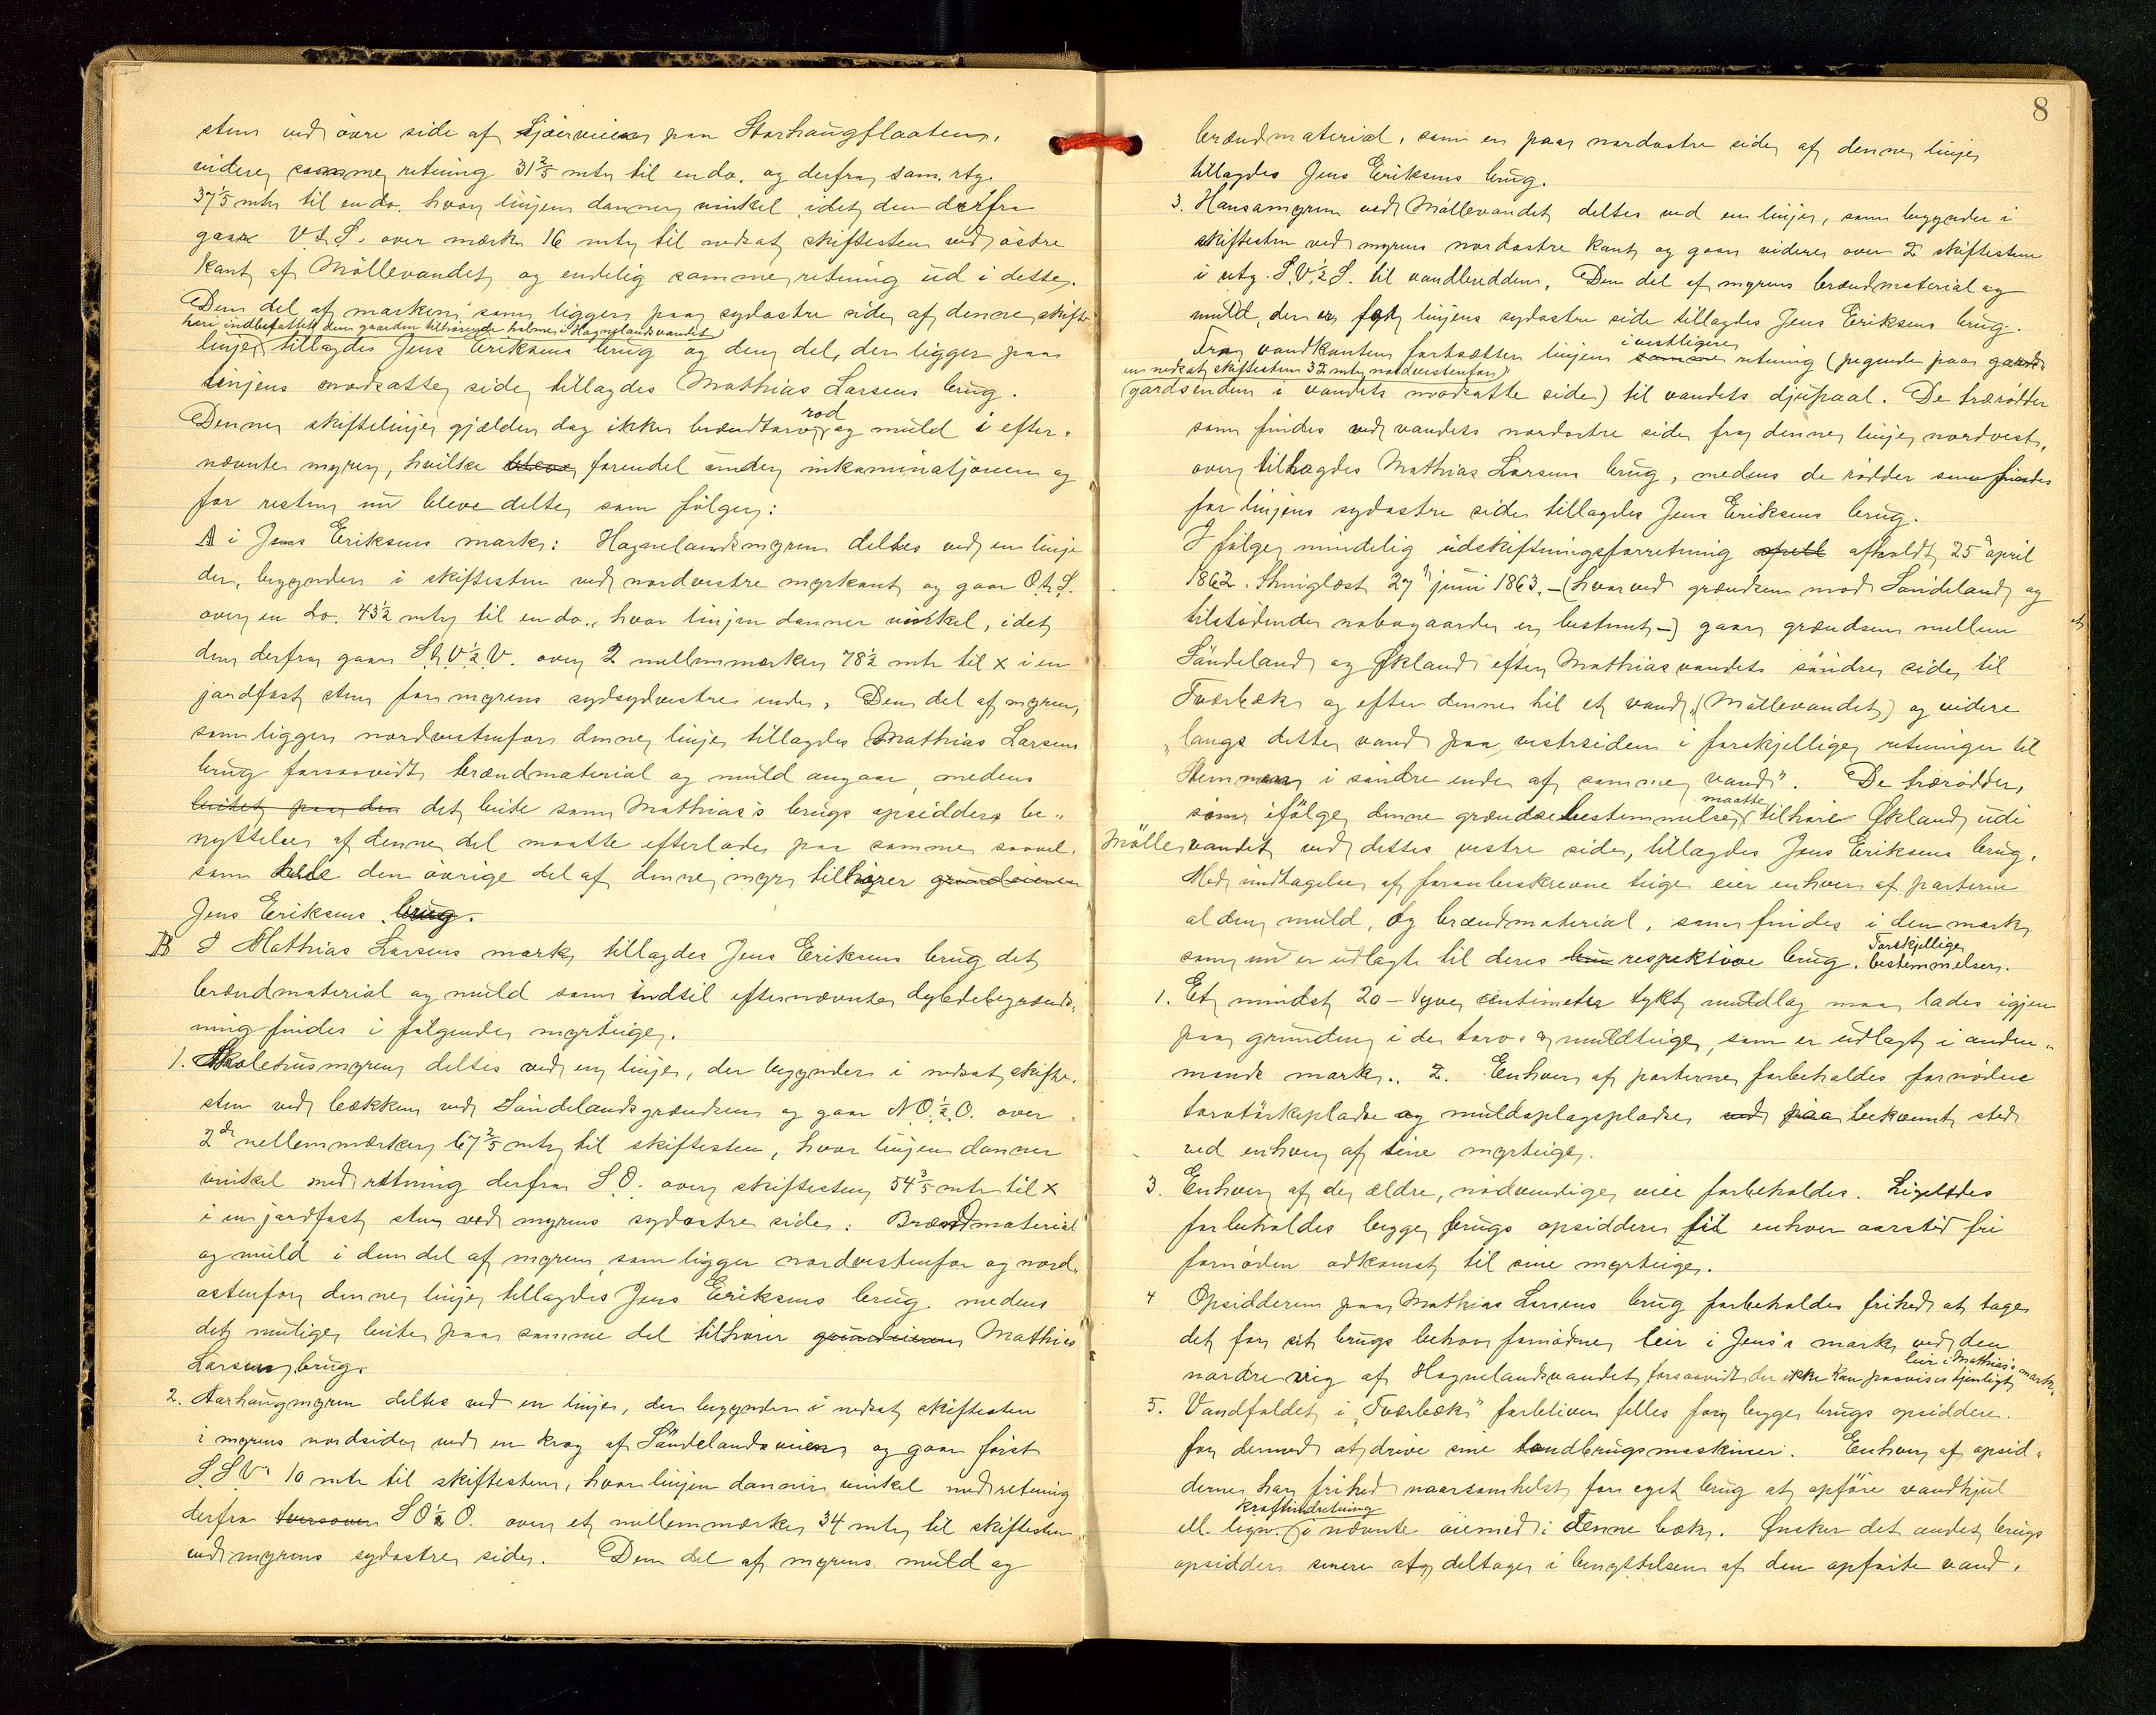 sten ved øvre side af Sjøerveien paa Storhaugflaaten,
videre samme retning 31 2/5 mtr til en do. og derfra sam. rtg.
37 1/5 mtr til en do. hvor linjen danner vinkel idet den derfra
gaar V.t.S. over mærke 16 mtr til nedsat skiftesten ved østre
kant af Møllevandet og endelig samme retning ud i dette.
Den del af marken som ligger paa sydostre side af denne skifte
heri indbefattet den gaarden tilhørende holme i Hagnelandsvandet
linje tillagdes Jens Eriksens brug og den del, der ligger paa
linjens modsatte side tillagdes Mathias Larsens brug.
Denne skiftelinje gjælder dog ikke brændtorv, rod og muld i efter-
nævnte myrer, hvilke bleve forendel under inkaminationen og
for resten nu bleve delte som følger:
A i Jens Eriksens mark: Hagnelandsmyren deltes ved en linje
der, begynder i skiftesten ved nordvestre myrkant og gaar O.t.S.
over en do. 43 1/2 mtr til en do., hvor linjen danner vinkel, idet
den derfra gaar S.t.V. 1/2 V. over 2 mellemmærker 78 1/2 mtr til x i en
jordfast sten for myrens sydsydvestre ende. Den del af myren,
som ligger nordvestenfor denne linje tillagdes Mathias Larsens
brug forsaavidt brændmaterial og muld angaar, medens
beitet paa den det beite som Mathias's brugs opsidders be-
nyttelse af denne del maatte efterlade paa samme saavel-
som hele den øvrige del af denne myr tilhører grundeieren
Jens Eriksens brug.
B I Mathias Larsens mark tillagdes Jens Eriksens brug det
brændmaterial og muld som indtil efternævnte dybdebegrænds-
ning findes i følgende myrteiger.
1. Skolehusmyren deltes ved en linje, der begynder i nedsat skifte-
sten ved bækken ved Søndelandsgrændsen og gaar NO. 1/2 O. over
2de mellemmærker 67 2/5 mtr til skiftesten, hvor linjen danner
vinkel med retning derfra S.O. over skiftesten 54 3/5 mtr til x
i en jordfast sten ved myrens sydostre side. Brændmaterial
og muld i den del af myren, som ligger nordvestenfor og nord-
ostenfor denne linje tillagdes Jens Eriksens brug medens
det mulige beite paa samme del tilhører grundeieren Mathias
Larsens brug.
2. Aarhaugmyren deltes ved en linje, der begynder i nedsat skiftesten
i myrens nordside ved en krog af Søndelandsveien og gaar først
S.S.V. 10 mtr til skiftesten, hvor linjen danner vinkel med retning
derfra tversover SO 1/2 O. over et mellemmærke 34 mtr til skiftesten
ved myrens sydostre side. Den del af myrens muld og
8
brændmaterial, som er paa nordostre side af denne linje
tillagdes Jens Eriksens brug.
3. Hansamyren ved Møllevandet deltes ved en linje, som begynder i
skiftesten ved myrens nordostre kant og gaar videre over 2 skiftesten
i rtg. S.V. 1/2 S. til vandbredden. Den del af myrens brændmaterial og
muld, der er for linjens sydostre side tillagdes Jens Eriksens brug.
i vestligere
Fra vandkanten fortsætter linjen samme retning (pegende paa gaards
en nedsat skiftesten 32 mtr nordvestenfor
gardsenden i vandets modsatte side) til vandets djupaal. De trærødder
som findes ved vandets nordostre side fra denne linje nordvest-
over tillagdes Mathias Larsens brug, medens de rødder som findes
for linjens sydostre side tillagdes Jens Eriksens brug.
I følge mindelig udskiftningsforretning afholdt 25de april
1862. Thinglæst 27de juni 1863. – (hvorved grændsen mod Søndeland og
tilstødende nabogaarde er bestemt –) gaar grændsen mellem
Søndeland og Økland efter Mathiasvandets søndre side til
Tværbæk og efter denne til et vand, (Møllevandet) og videre
„langs dette vand paa vestsiden i forskjellige retninger til
Stemmen i søndre ende af samme vand". De trærødder,
som ifølge denne grændsebestemmelse maatte tilhøre Økland udi
Møllevandet ved dettes vestre side, tillagdes Jens Eriksens brug.
Med undtagelse af foranbeskrevne teige eier enhver af parterne
al den muld, og brændmaterial, som findes i den mark,
som nu er udlagte til deres respektive brug. Forskjellige bestemmelser.
1. Et mindst 20 – tyve centimeter tykt muldlag maa lades igjen
paa grunden i de torv- og muldteiger, som er udlagt i anden-
mands mark.. 2. Enhver af parterne forbeholdes fornødne
torvtørkepladse og muldoplagspladse ved paa bekvemt sted
ved enhver af sine myrteiger.
3. Enhver af de ældre, nødvendige veie forbeholdes. Ligeledes
forbeholdes begge brugs opsiddere til enhver aarstid fri
fornøden adkomst til sine myrteiger.
4 Opsidderen paa Mathias Larsens brug forbeholdes frihed at tage
det for sit brugs behov fornødne leir i Jens's mark ved den
nordre vig af Hagnelandsvandet, forsaavidt der ikke kan paavises tjenligt leir i Mathias's mark.
5. Vandfaldet i „Tværbæk" forbliver felles for begge brugs opsiddere.
for dermed at drive sine landbrugsmaskiner. Enhver af opsid-
derne har frihed naarsomhelst for eget brug at opføre vandhjul
kraftindretning
ell. lign. i nævnte øiemed i denne bæk. Ønsker det andet brugs
opsidder senere at deltage i benyttelsen af den opførte vand-